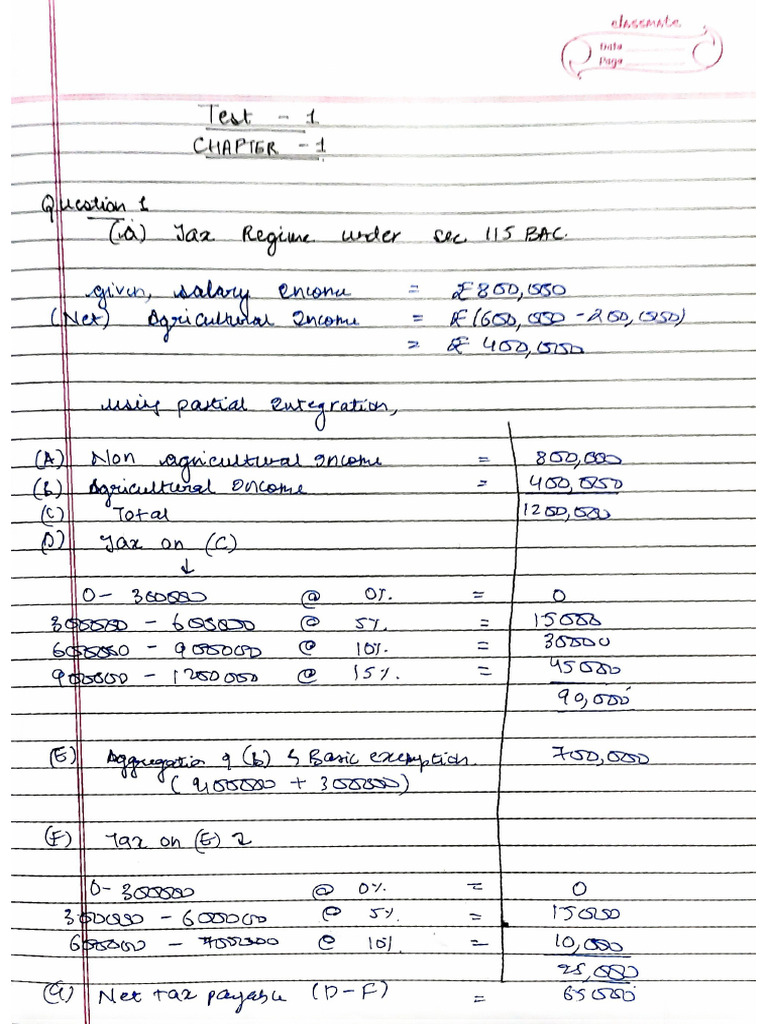 classmate
Date
Page
Test - 1
CHAPTER - 1
Question 1
(a) Tax Regime under sec 115 BAC.
given, salary income = ₹ 800,000
(Net) Agricultural Income = ₹ (600,000 - 200,000)
= ₹ 400,000
using partial Integration,
(A) Non agricultural Income = 800,000
(B) Agricultural Income = 400,000
(C) Total 1200,000
(D) Tax on (C)
↓
0 - 300000 @ 0% = 0
300000 - 600000 @ 5% = 15000
600000 - 900000 @ 10% = 30000
900000 - 1200000 @ 15% = 45000
90,000
(E) Aggregation of (b) & Basic exemption. 700,000
(400000 + 300000)
(F) Tax on (E)
0 - 300000 @ 0% = 0
300000 - 600000 @ 5% = 15000
600000 - 700000 @ 10% = 10,000
25,000
(G) Net tax payable (D-F) = 65000